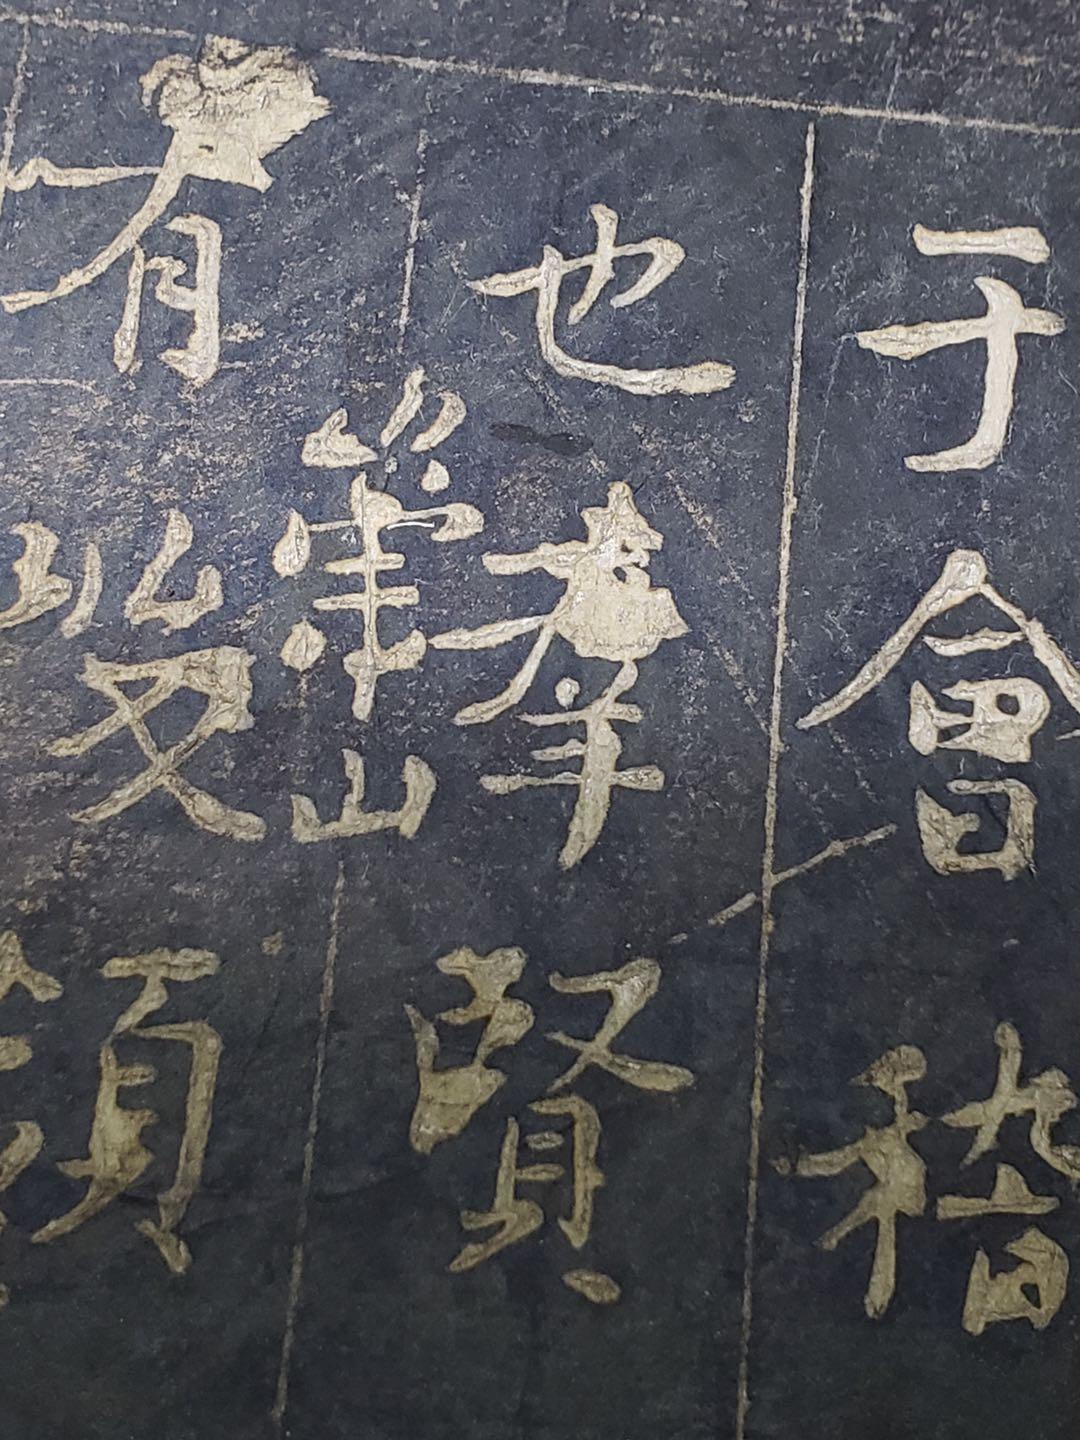 于會稽
也羣賢
有崇山峻領